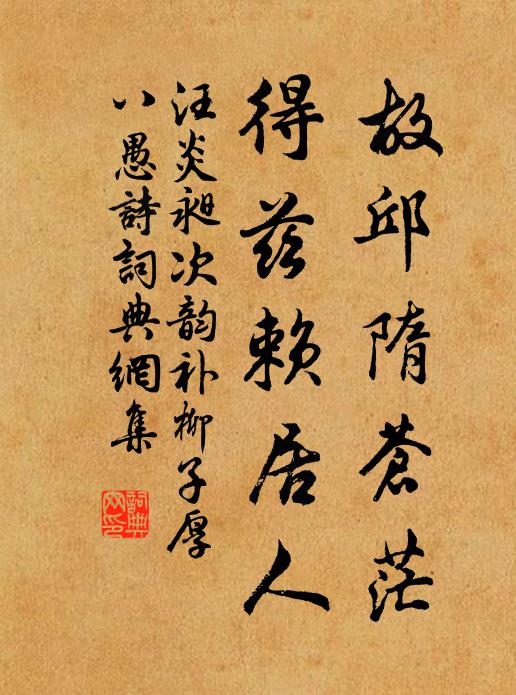 故邱隋蒼茫
得茲賴居人
汪炎昶次韵补柳子厚
八愚詩詞典網集
詞典網印